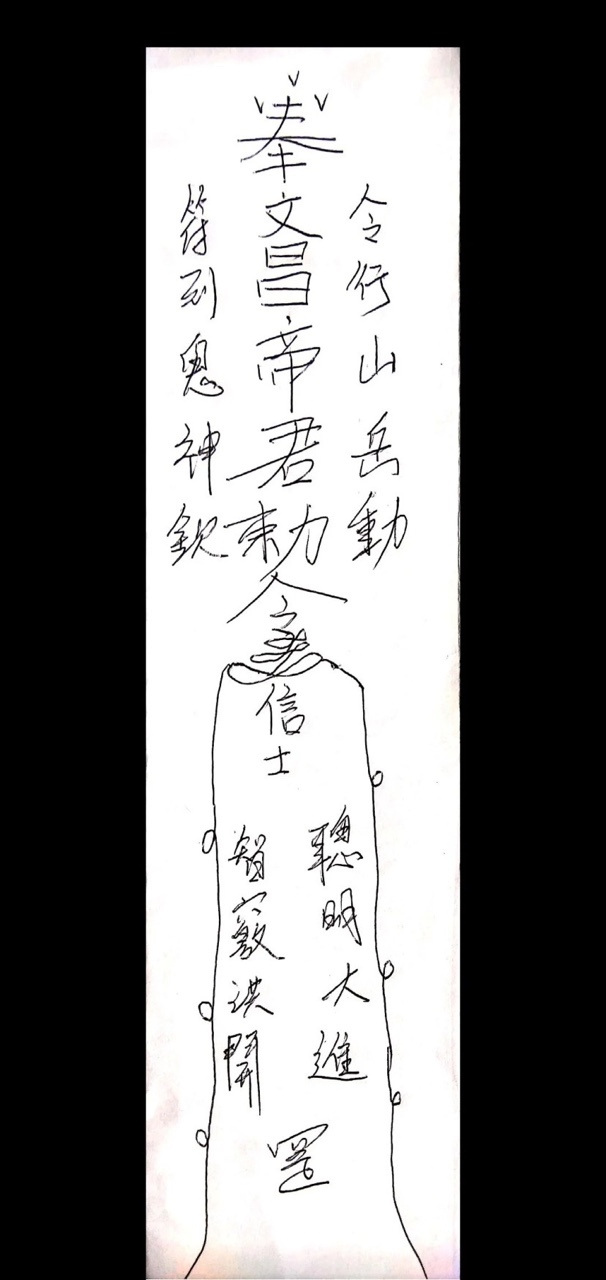 奉文昌帝君勅令
令行山岳動
符到鬼神欽
信士
聰明大進
智竅洪開
罡